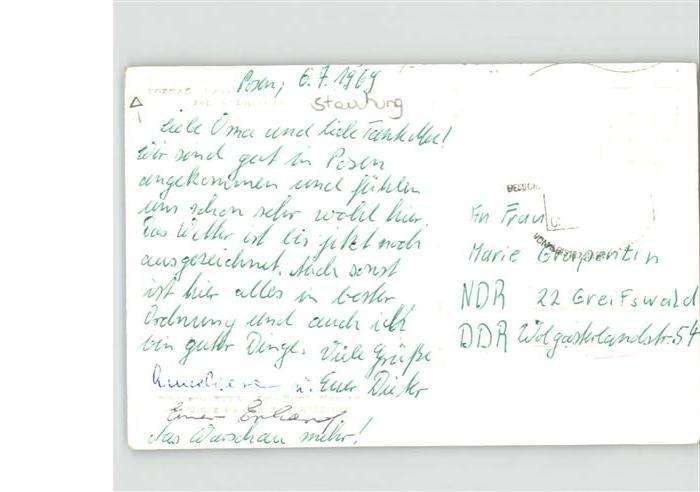 Posen, 6.7.1969
Stauung
Liebe Oma und liebe Tante
Wir sind gut in Posen
angekommen und fühlen
uns schon sehr wohl hier.
Das Wetter ist bis jetzt noch
ausgezeichnet. Auch sonst
ist hier alles in bester
Ordnung und auch ich
bin guter Dinge. Viele Grüße
u. Euer Dieter
Euer
Das Warschau mehr!
An Frau
Marie Grapentin
NDR 22 Greifswald
DDR Wolgasterlandstr. 54